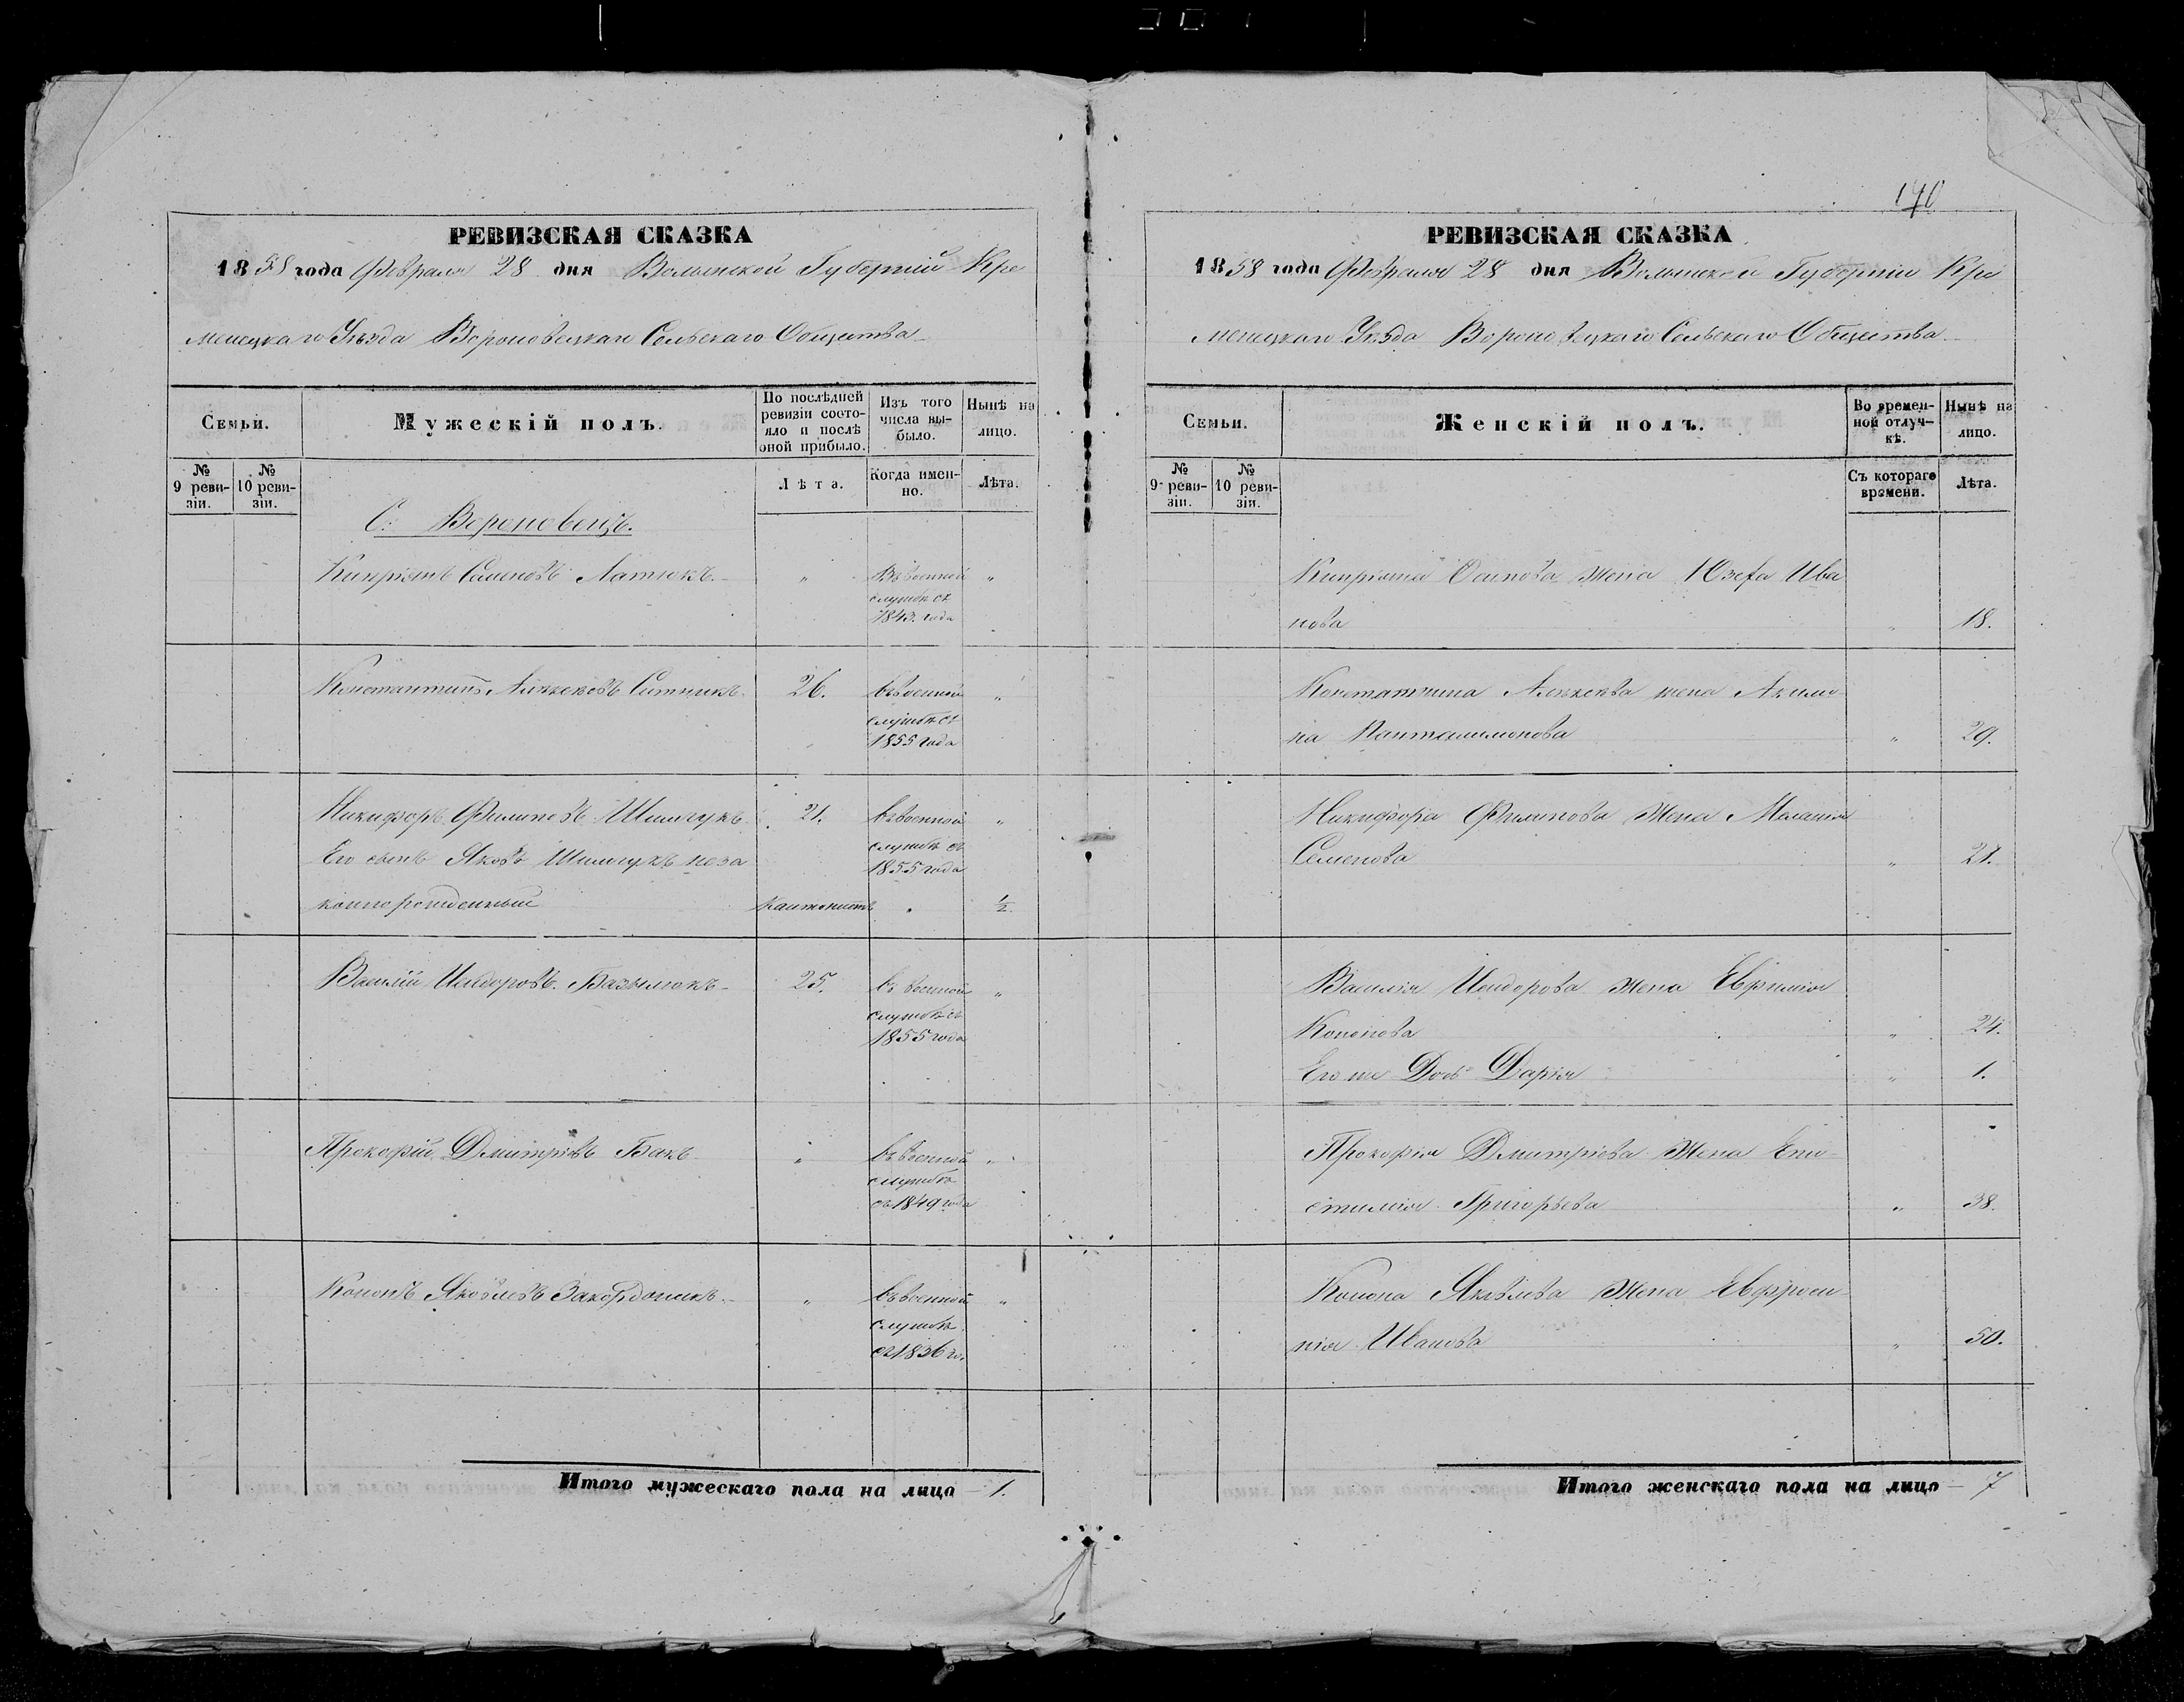 РЕВИЗСКАЯ СКАЗКА
1858 года Февраля 28 дня Волынской Губерніи Кре
менецкаго Уѣзда Вороновецкаго Сельскаго Общества
Семьи.
Мужескій полъ.
По послѣдней ревизіи состояло и послѣ оной прибыло.
Изъ того числа выбыло.
Нынѣ на лицо.
№ 9 ревизіи.
№ 10 ревизіи.
Лѣта.
Когда именно.
Лѣта.
С. Вороновецъ.
Кипріянъ Латюкъ " Въ военной "
службѣ съ
1843 года
Константинъ Алексѣевъ Ситникъ 26. въ военной "
службѣ съ
1855 года
Никифоръ Филиповъ Шимчукъ 21. въ военной "
Его сынъ Яковъ Шимчукъ неза службѣ съ
1855 года
коннорожденный кантонистъ " ½
Василій Исидоровъ Базылюкъ 25. въ военной "
службѣ съ
1855 года
Прокофій Дмитріевъ Бакъ " въ военной "
службѣ
съ 1849 года
Кононъ Яковлевъ Закордонецъ " въ военной "
службѣ
съ 1836 го.
Итого мужескаго пола на лицо 1.
170
РЕВИЗСКАЯ СКАЗКА
1858 года Февраля 28 дня Волынской Губерніи Кре
менецкаго Уѣзда Вороновецкаго Сельскаго Общества
Семьи.
Женскій полъ.
Во временной отлучкѣ.
Нынѣ на лицо.
№ 9 ревизіи.
№ 10 ревизіи.
Съ котораго времени.
Лѣта.
Кипріяна Осипова жена Юзефа Ива
нова " 18.
Константина Алексѣева жена Акили-
на Панталимонова " 29.
Никифора Филипова Жена Маланія
Семенова " 21.
Василія Исидорова жена Евфимія
Кононова " 24.
Его же Дочь Дарія " 1.
Прокофія Дмитріева Жена Епи-
стимія Григорьева " 38.
Конона Яковлева Жена Евфроси
нія Иванова " 50.
Итого женскаго пола на лицо 7